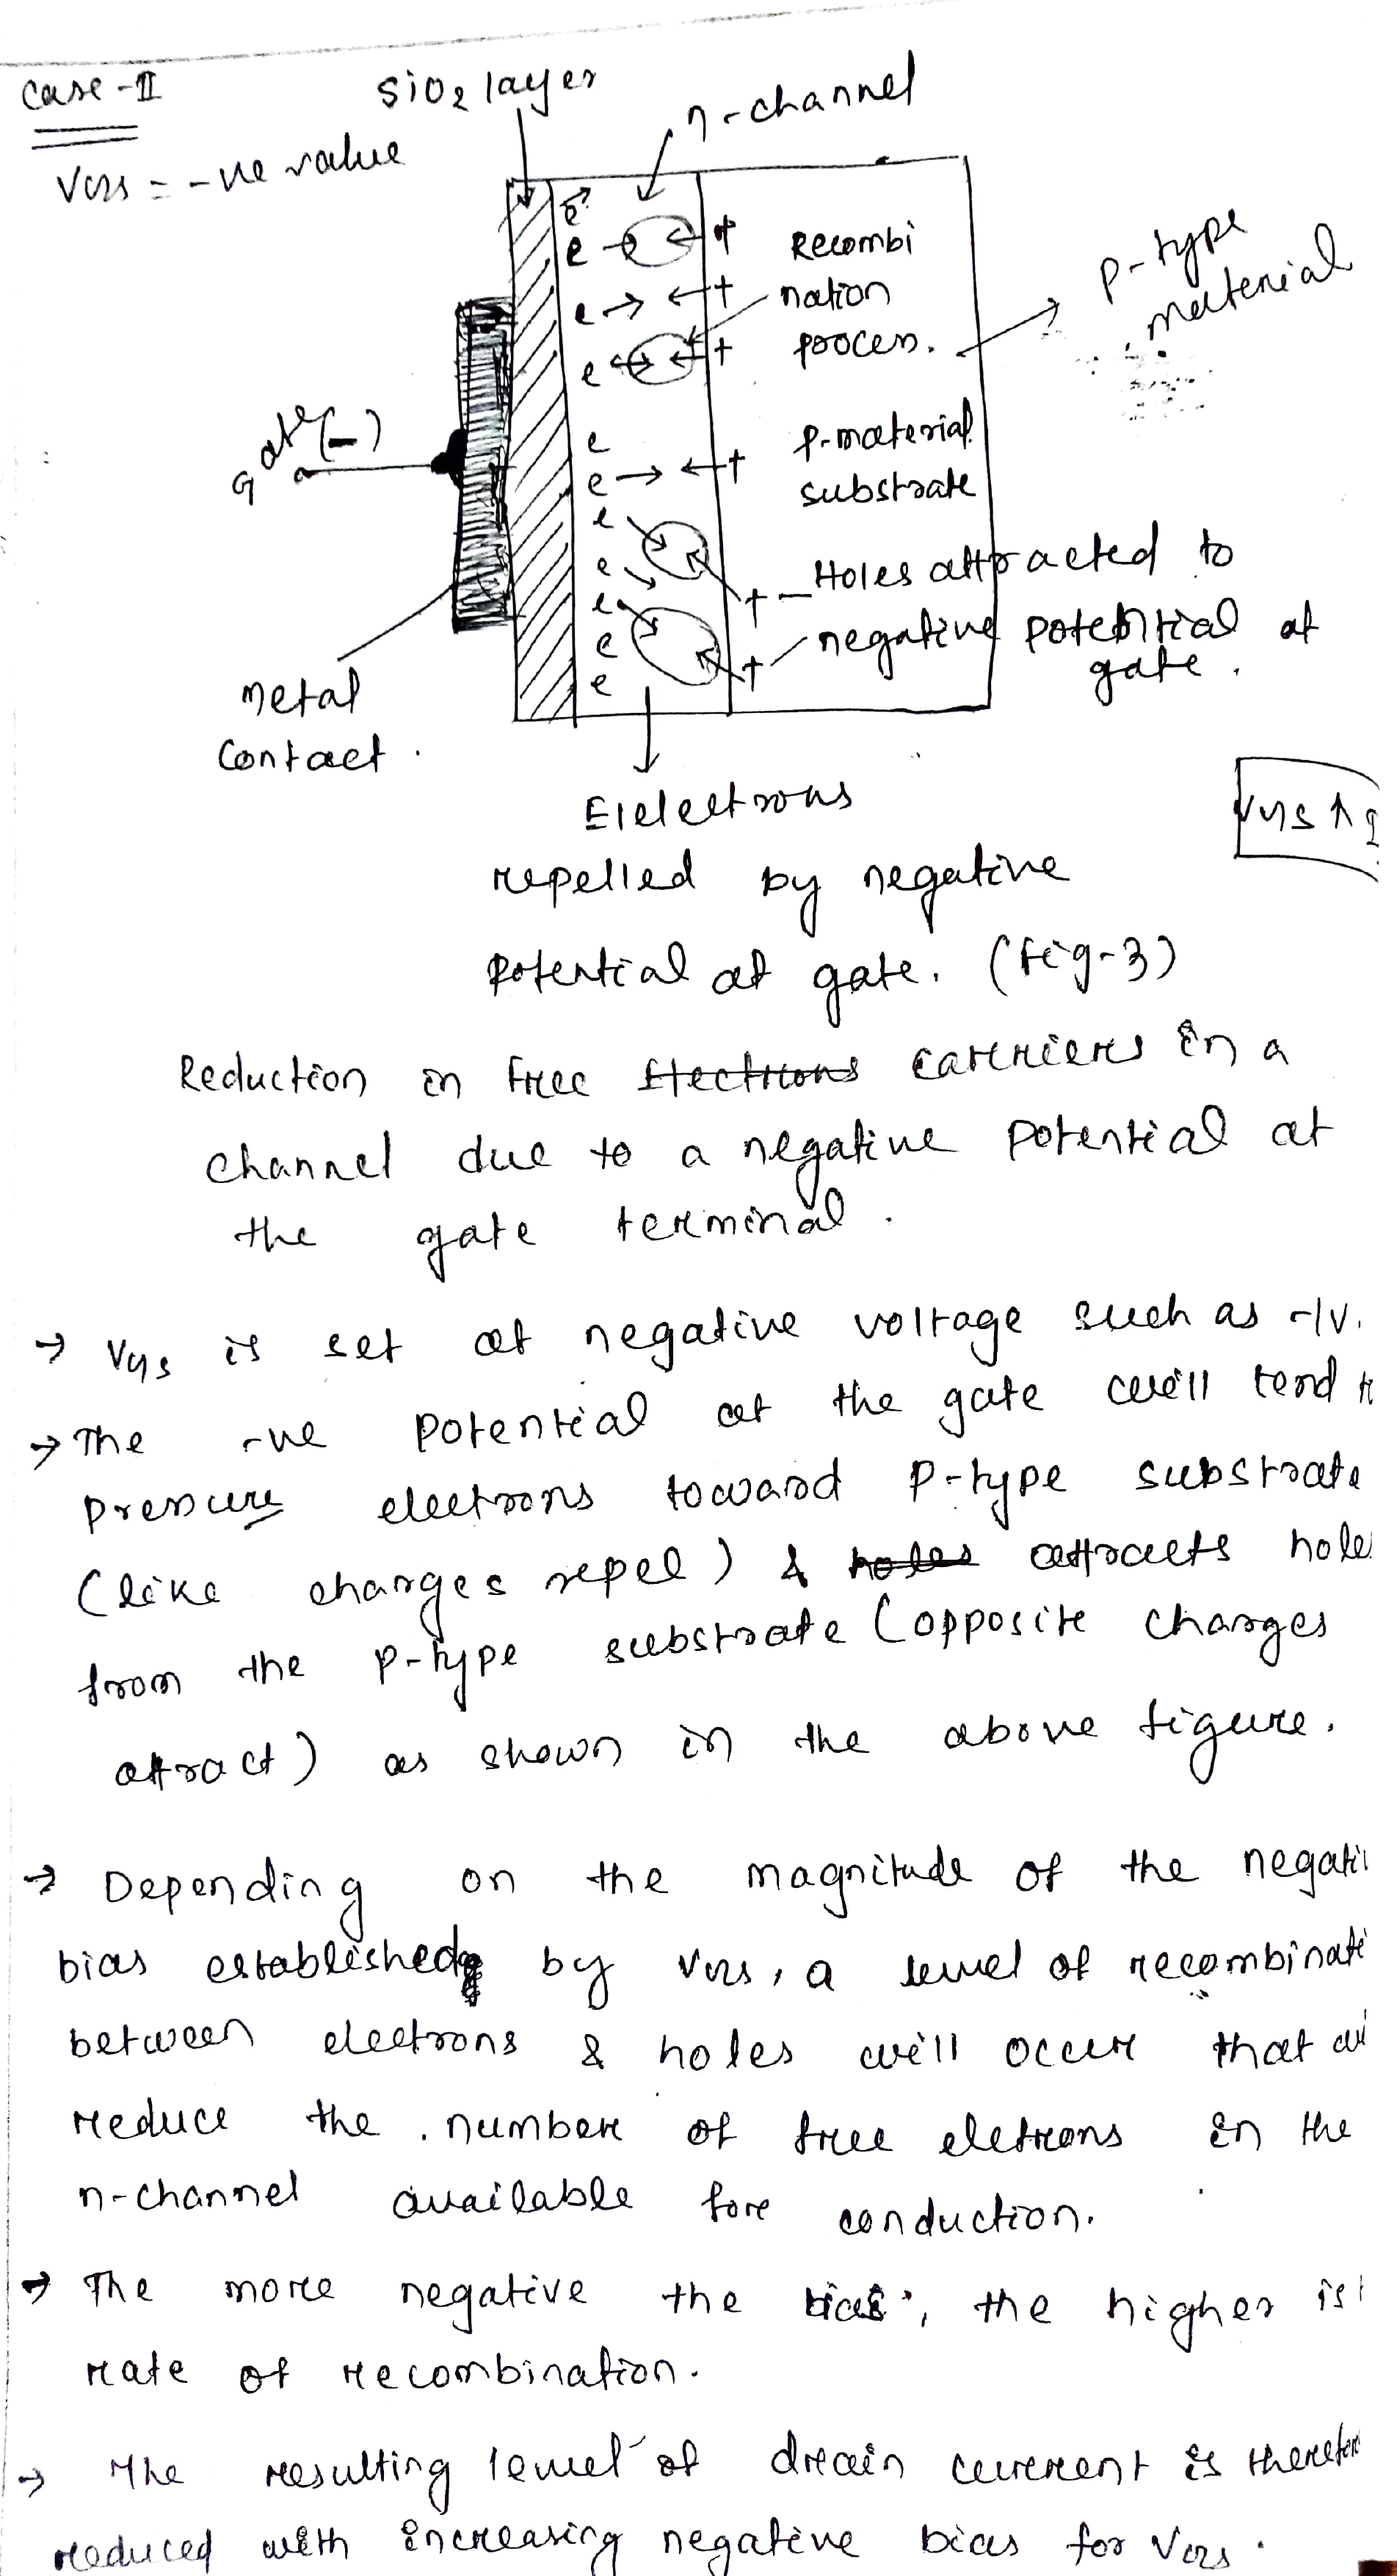 case-II
SiO2 layer
n-channel
VGS = -ve value
Recombi
nation
process.
P-type
material
Gate(-)
P-material
substrate
Holes attracted to
negative potential at
gate.
Metal
Contact.
Elelectrons
repelled by negative
potential at gate. (fig-3)
VGS ↑
Reduction in free Electrons carriers in a
channel due to a negative potential at
the gate terminal.
→ VGS is set at negative voltage such as -1V.
→ The -ve potential at the gate will tend
pressure electrons toward P-type substrate
(like charges repel) & holes attracts hole
from the P-type substrate (opposite charges
attract) as shown in the above figure.
→ Depending on the magnitude of the negati
bias established by VGS, a level of recombinati
between electrons & holes will occur that wi
reduce the number of free eletrons in the
n-channel available fore conduction.
→ The more negative the bias, the higher is
rate of recombination.
→ The resulting level of drain current is therefore
reduced with increasing negative bias for VGS.